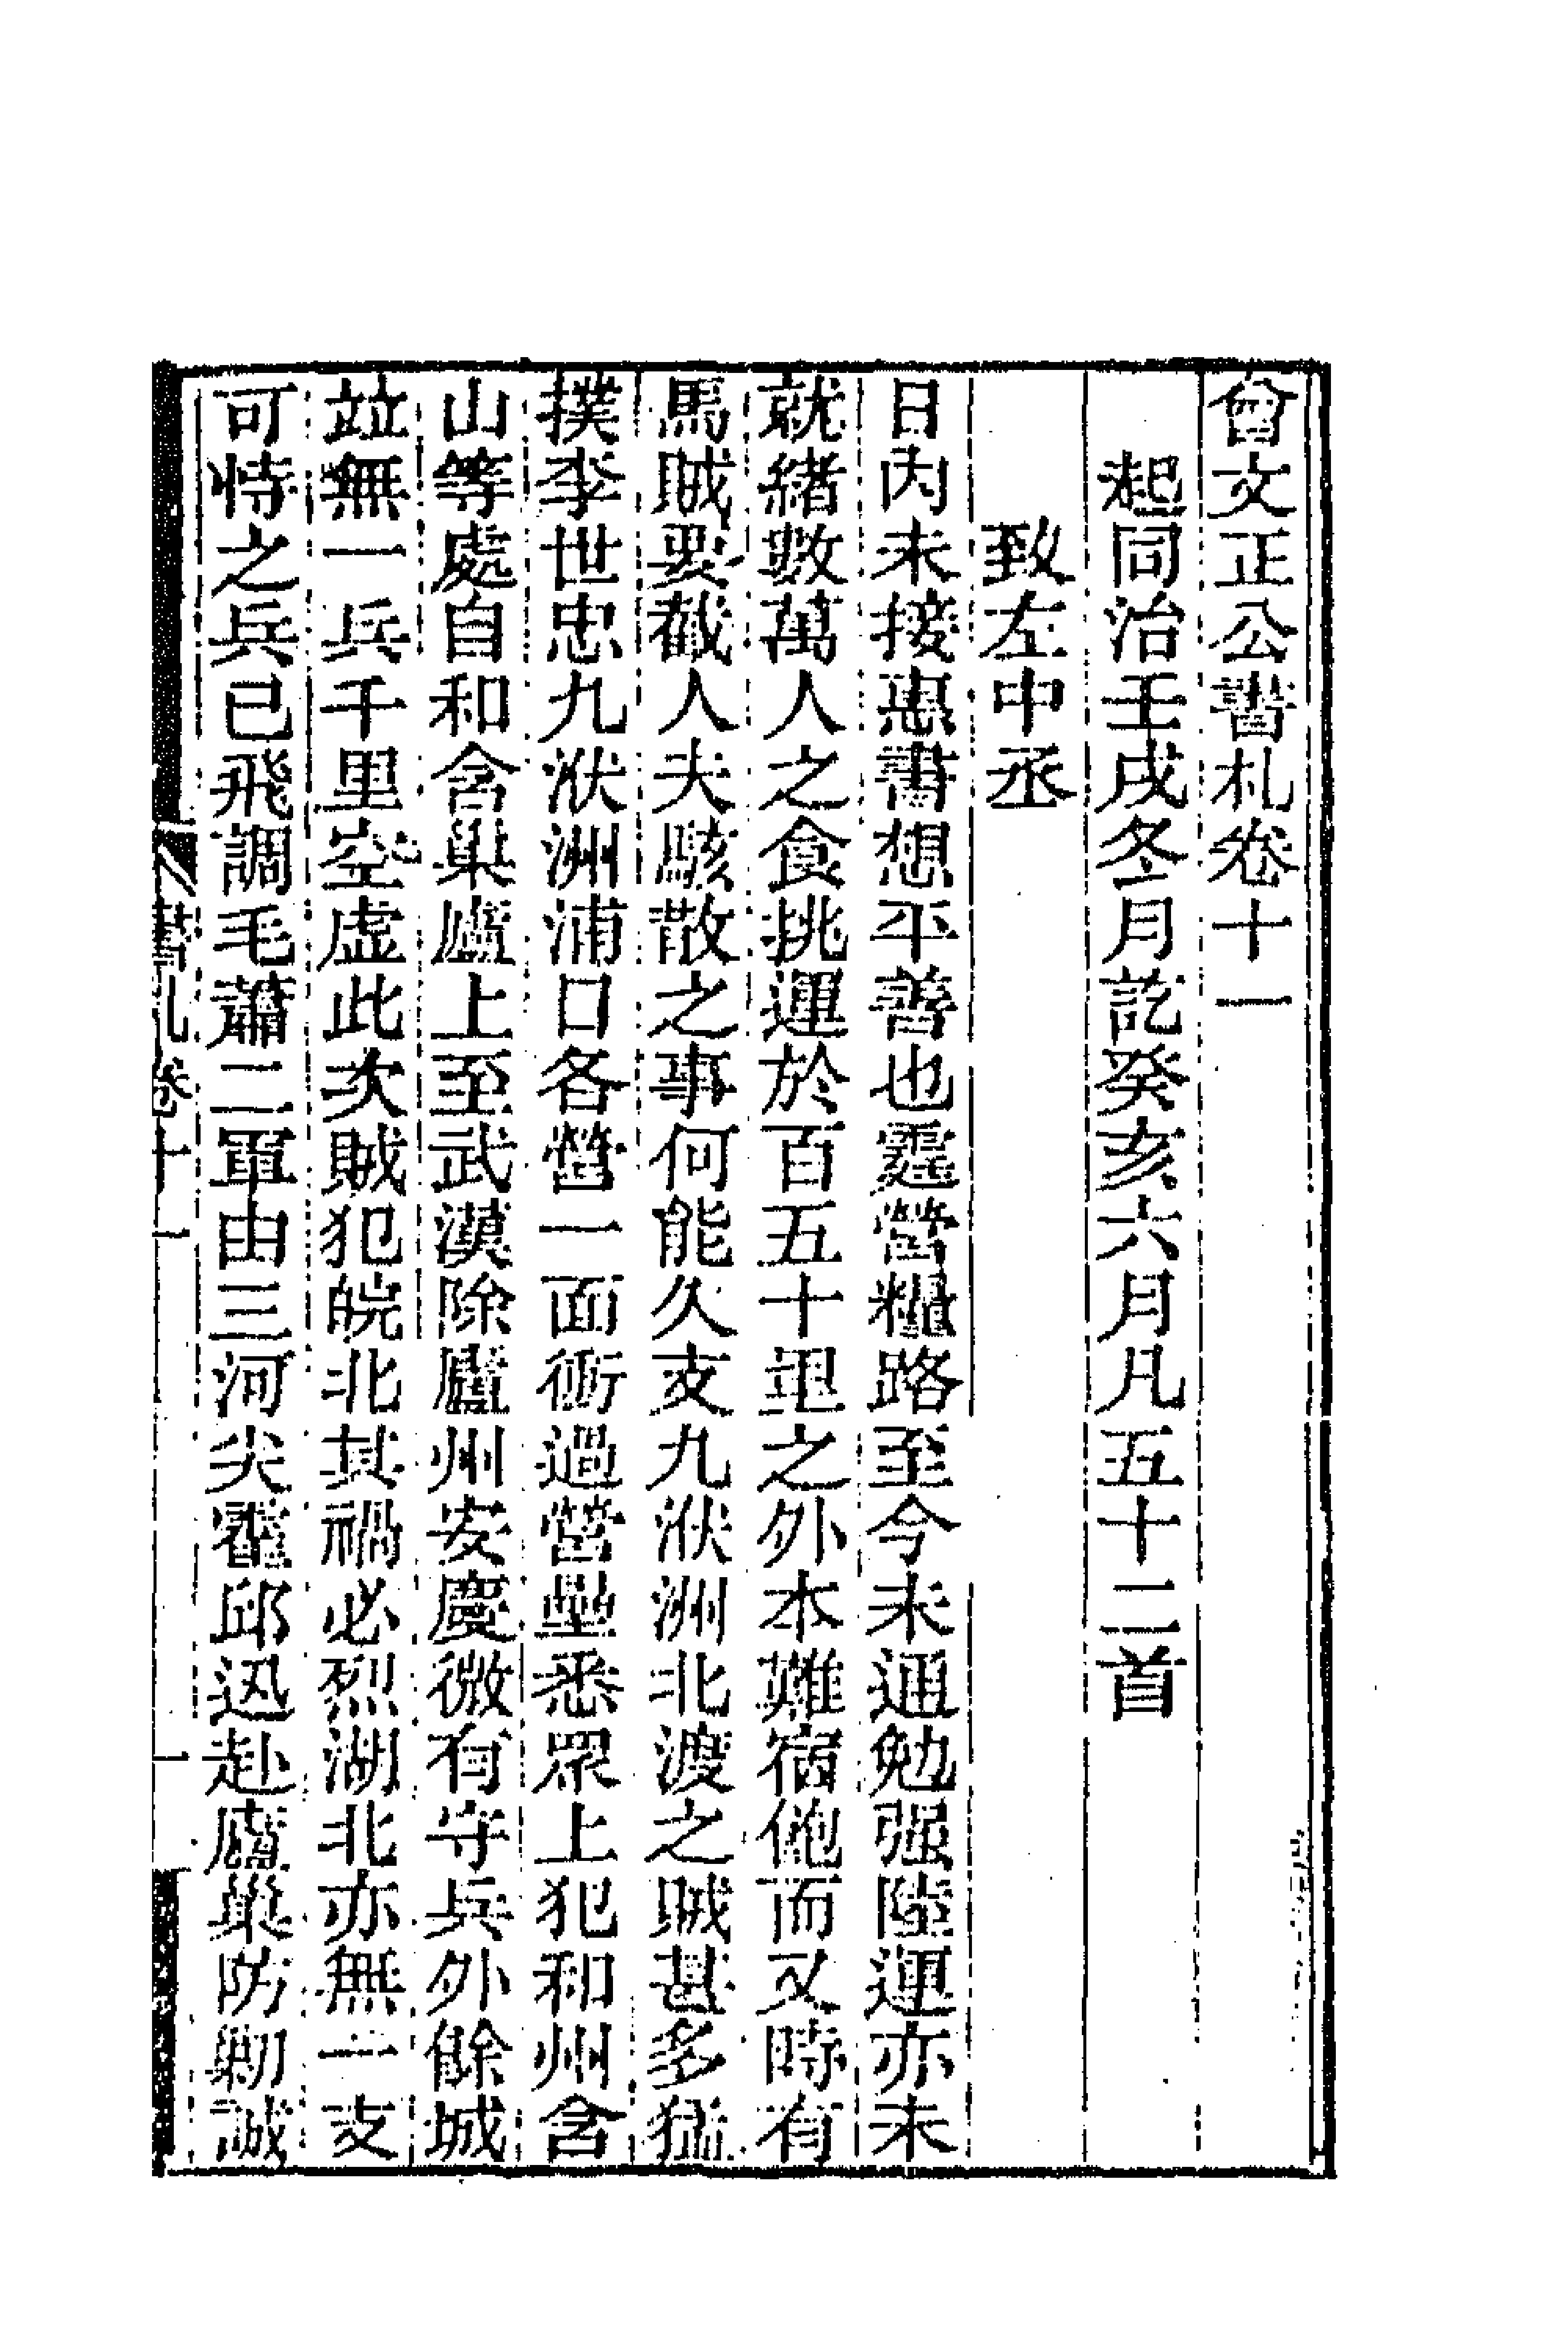 曾文正公書札卷十一
起同治壬戌冬月訖癸亥六月凡五十二首
致左中丞
日内未接惠書想平善也霆營糧路至今未通勉强陸運亦未
就緒數萬人之食挑運於百五十里之外本難宿飽而又時有
馬賊要截人夫駭散之事何能久支九洑洲北渡之賊甚多猛
撲李世忠九洑洲浦口各營一面衝過營壘悉眾上犯和州含
山等處自和含巢廬上至武漢除廬州安慶微有守兵外餘城
竝無一兵千里空虛此次賊犯皖北其禍必烈湖北亦無一支
可恃之兵已飛調毛蕭二軍由三河尖霍邱迅赴廬巢防勦誠
書札卷十一 一